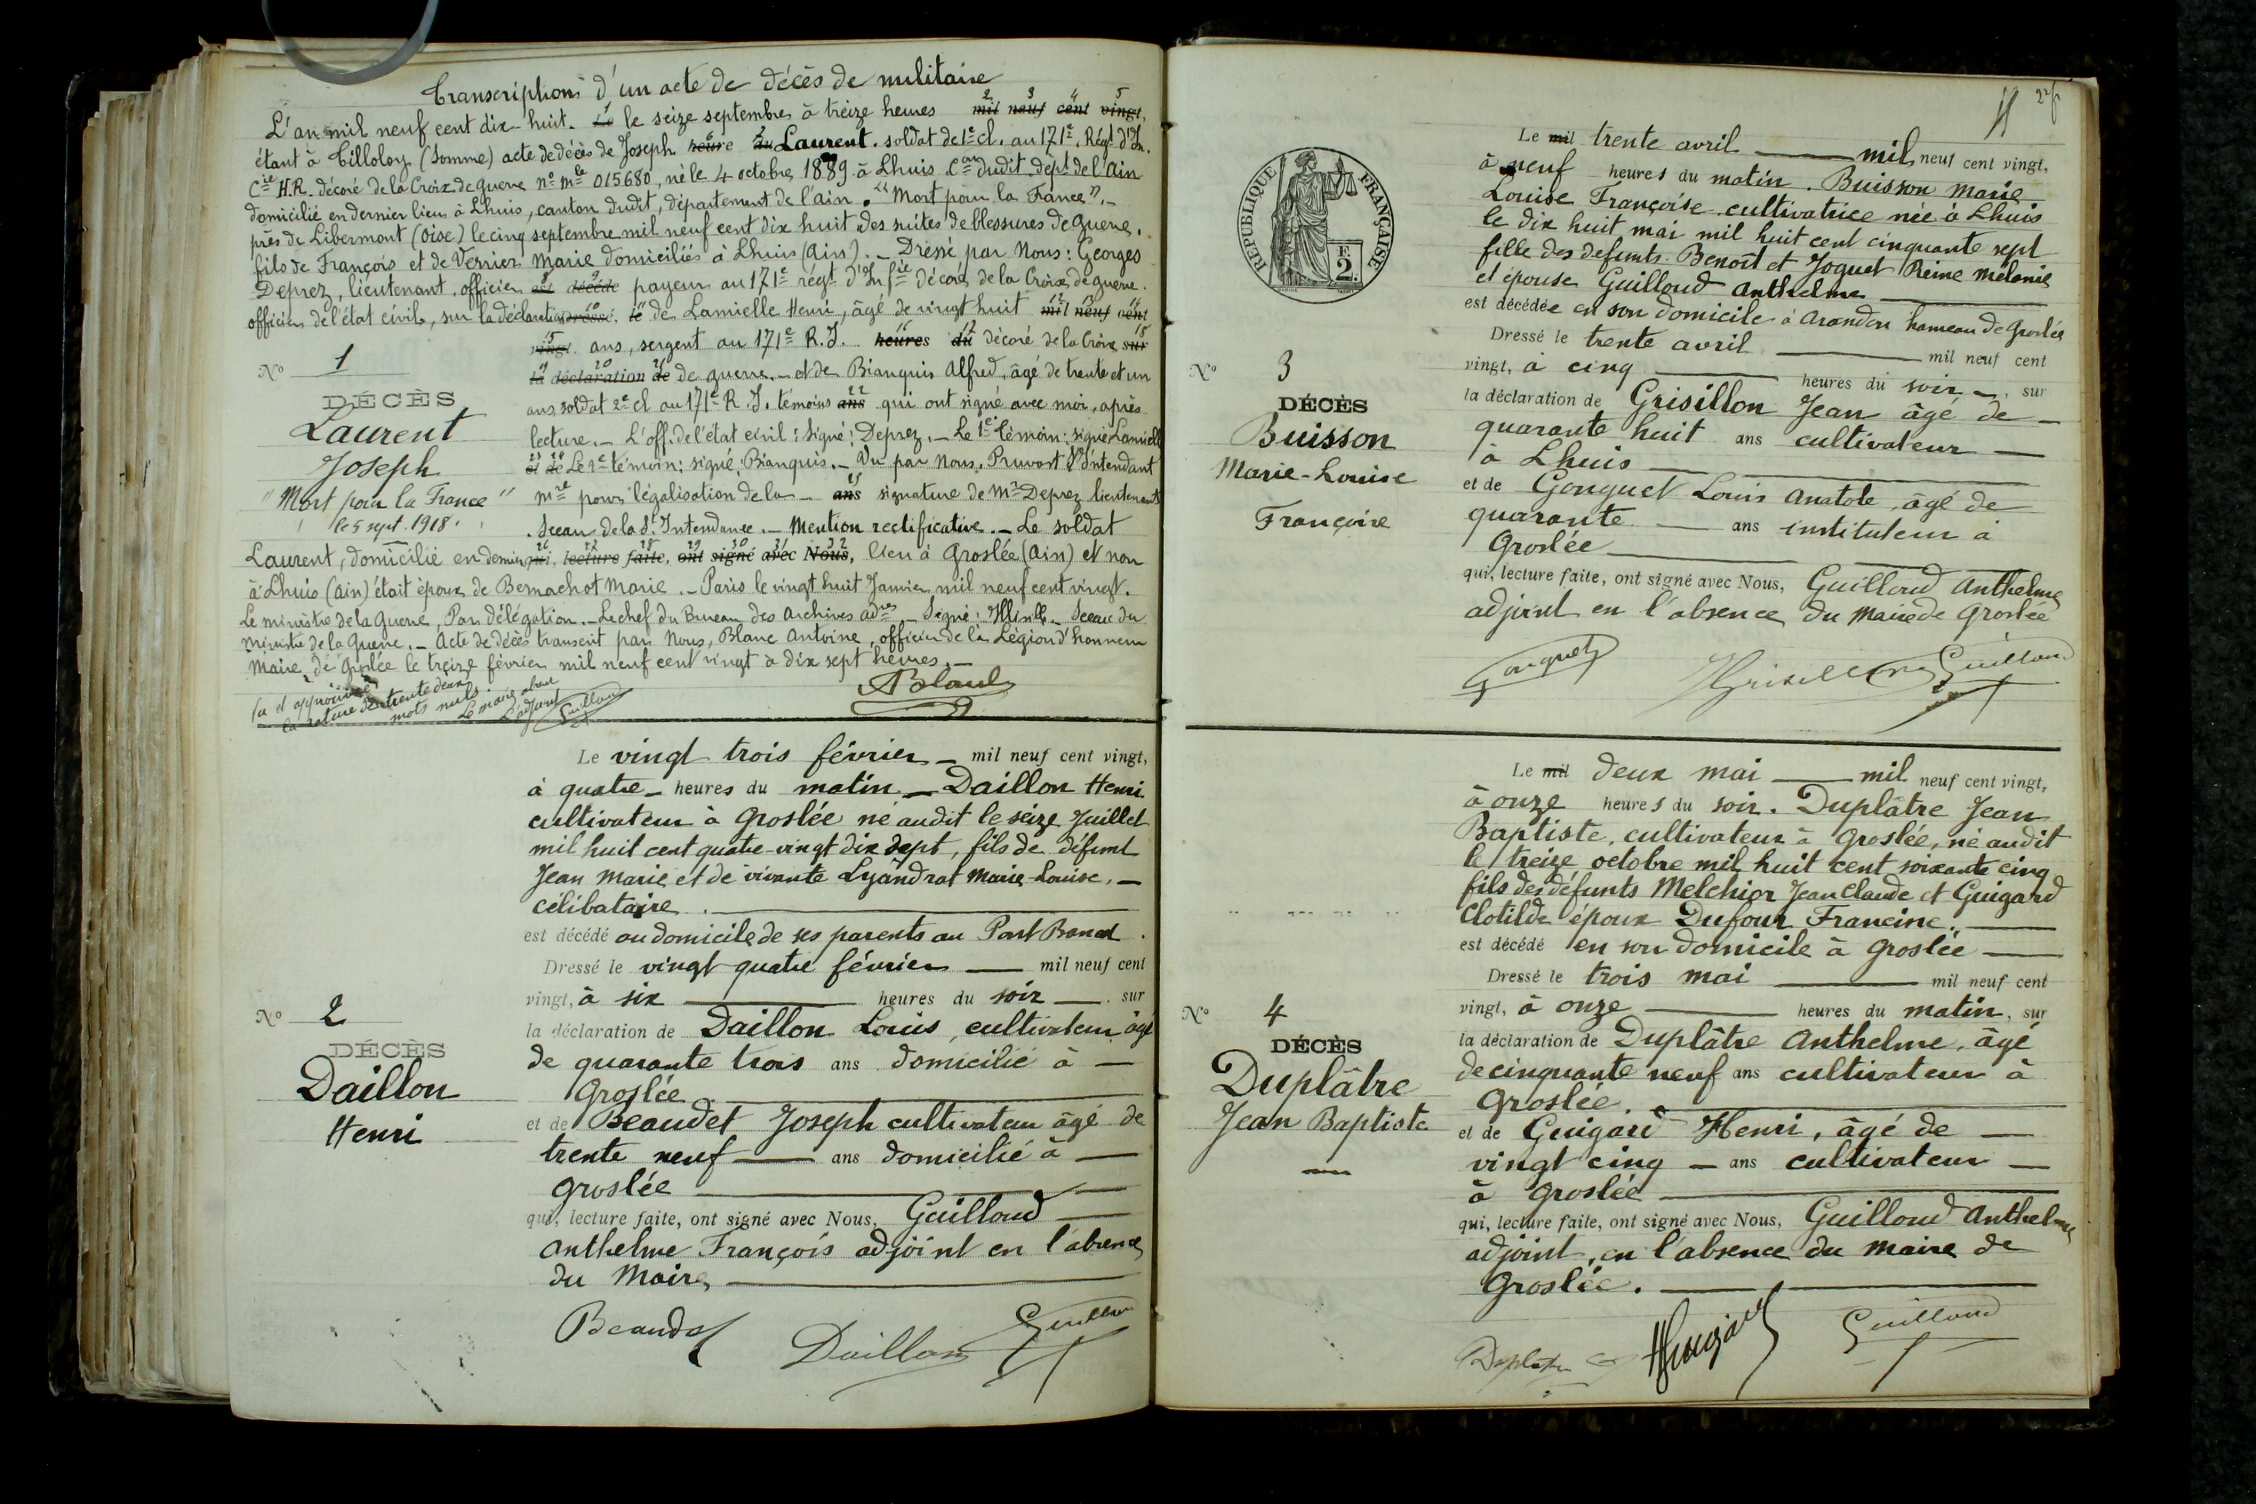 Transcriptions d'un acte de décès de militaire
L'an mil neuf cent dix-huit. le seize septembre à treize heures mil neuf cent vingt,
étant à Tilloloy (Somme) acte de décès de Joseph heure du Laurent. soldat de 1e cl. au 171e Régt d'In.
Cie H.R. décoré de la Croix de guerre no mle 015680, né le 4 octobre 1889 à Lhuis Con dudit Dépt de l'Ain
domicilié en dernier lieu à Lhuis, canton dudit, département de l'ain. "Mort pour la France". -
près de Libermont (Oise) le cinq septembre mil neuf cent dix huit des suites de blessures de guerre.
fils de François et de Vernier Marie domiciliés à Lhuis (Ain). - Dressé par Nous: Georges
Deprez, lieutenant, officier est décédé payeur au 171e régt d'Infie décoré de la Croix de guerre.
officier de l'état civil, sur la déclaration dressé, le de Lamielle Henri, âgé de vingt huit mil neuf cent
vingt. ans, sergent au 171e R.I. heures du décoré de la Croix sur
la déclaration de de guerre. - et de Bianquis Alfred, âgé de trente et un
ans, soldat 2e cl au 171e R.I. témoins ans qui ont signé avec moi, après
lecture. - L'off. de l'état civil: signé: Deprez. - Le 1e témoin: signé Lamielle
et de Le 2e témoin: signé: Bianquis. - Vu par Nous, Pruvost S. Intendant
mre pour légalisation de la - ans signature de Mr Deprez lieutenant
. Sceau de la S. Intendance. - Mention rectificative. - Le soldat
Laurent, domicilié en dernier qui, lecture faite, ont signé avec Nous, lieu à Groslée (Ain) et non
à Lhuis (Ain) était époux de Bernachot Marie. - Paris le vingt huit Janvier mil neuf cent vingt.
Le ministre de la Guerre, Par délégation. - Le chef du Bureau des Archives adves - Signé: - Sceau du
Ministre de la Guerre. - Acte de décès transcrit par Nous, Blanc Antoine, officier de la Légion d'honneur
Maire de Groslée le treize février mil neuf cent vingt à dix sept heures. -
Lu et approuvé
la rature de trente deux
mots nuls
Le maire absent
L'adjoint
Guilloud
ABlanc
No 1
DÉCÈS
Laurent
Joseph
"Mort pour la France"
le 5 sept. 1918.
Le vingt trois février - mil neuf cent vingt,
à quatre - heures du matin - Daillon Henri
cultivateur à Groslée né audit le seize Juillet
mil huit cent quatre-vingt dix sept, fils de défunt
Jean Marie et de vivante Lyandrat Marie-Louise. -
célibataire.
est décédé au domicile de ses parents au Port
Dressé le vingt quatre février - mil neuf cent
vingt, à six - heures du soir - sur
la déclaration de Daillon Louis, cultivateur, âgé
de quarante trois ans domicilié à -
Groslée
et de Beaudet Joseph cultivateur âgé de
trente neuf - ans domicilié à -
Groslée
qui, lecture faite, ont signé avec Nous, Guilloud
Anthelme François adjoint en l'absence
du Maire
Beaudet
Daillon
Guilloud
No 2
DÉCÈS
Daillon
Henri
RÉPUBLIQUE FRANÇAISE
F.
2
Le mil trente avril - mil neuf cent vingt,
à neuf heures du matin. Buisson Marie
Louise Françoise cultivatrice née à Lhuis
le dix huit mai mil huit cent cinquante sept
fille des defunts Benoît et Joguet Reine Mélanie
et épouse Guilloud Anthelme
est décédée en son domicile à Arandon hameau de Groslée
Dressé le trente avril - mil neuf cent
vingt, à cinq - heures du soir -, sur
la déclaration de Grisillon Jean âgé de -
quarante huit ans cultivateur -
à Lhuis
et de Gonguet Louis Anatole, âgé de
quarante - ans instituteur à
Groslée
qui, lecture faite, ont signé avec Nous, Guilloud Anthelme
adjoint en l'absence du Maire de Groslée
Gonguet
Grisillon
Guilloud
No 3
DÉCÈS
Buisson
Marie-Louise
Françoise
Le mil deux mai - mil neuf cent vingt,
à onze heures du soir. Duplâtre Jean
Baptiste, cultivateur à Groslée, né audit
le treize octobre mil huit cent soixante cinq
fils des défunts Melchior Jean Claude et Guigard
Clotilde époux Dufour Francine.
est décédé en son domicile à Groslée
Dressé le trois mai - mil neuf cent
vingt, à onze - heures du matin, sur
la déclaration de Duplâtre Anthelme, âgé
de cinquante neuf ans cultivateur à
Groslée.
et de Guigard Henri, âgé de -
vingt cinq - ans cultivateur -
à Groslée
qui, lecture faite, ont signé avec Nous, Guilloud Anthelme
adjoint, en l'absence du Maire de
Groslée.
Duplatre
HGuigard
Guilloud
No 4
DÉCÈS
Duplâtre
Jean Baptiste